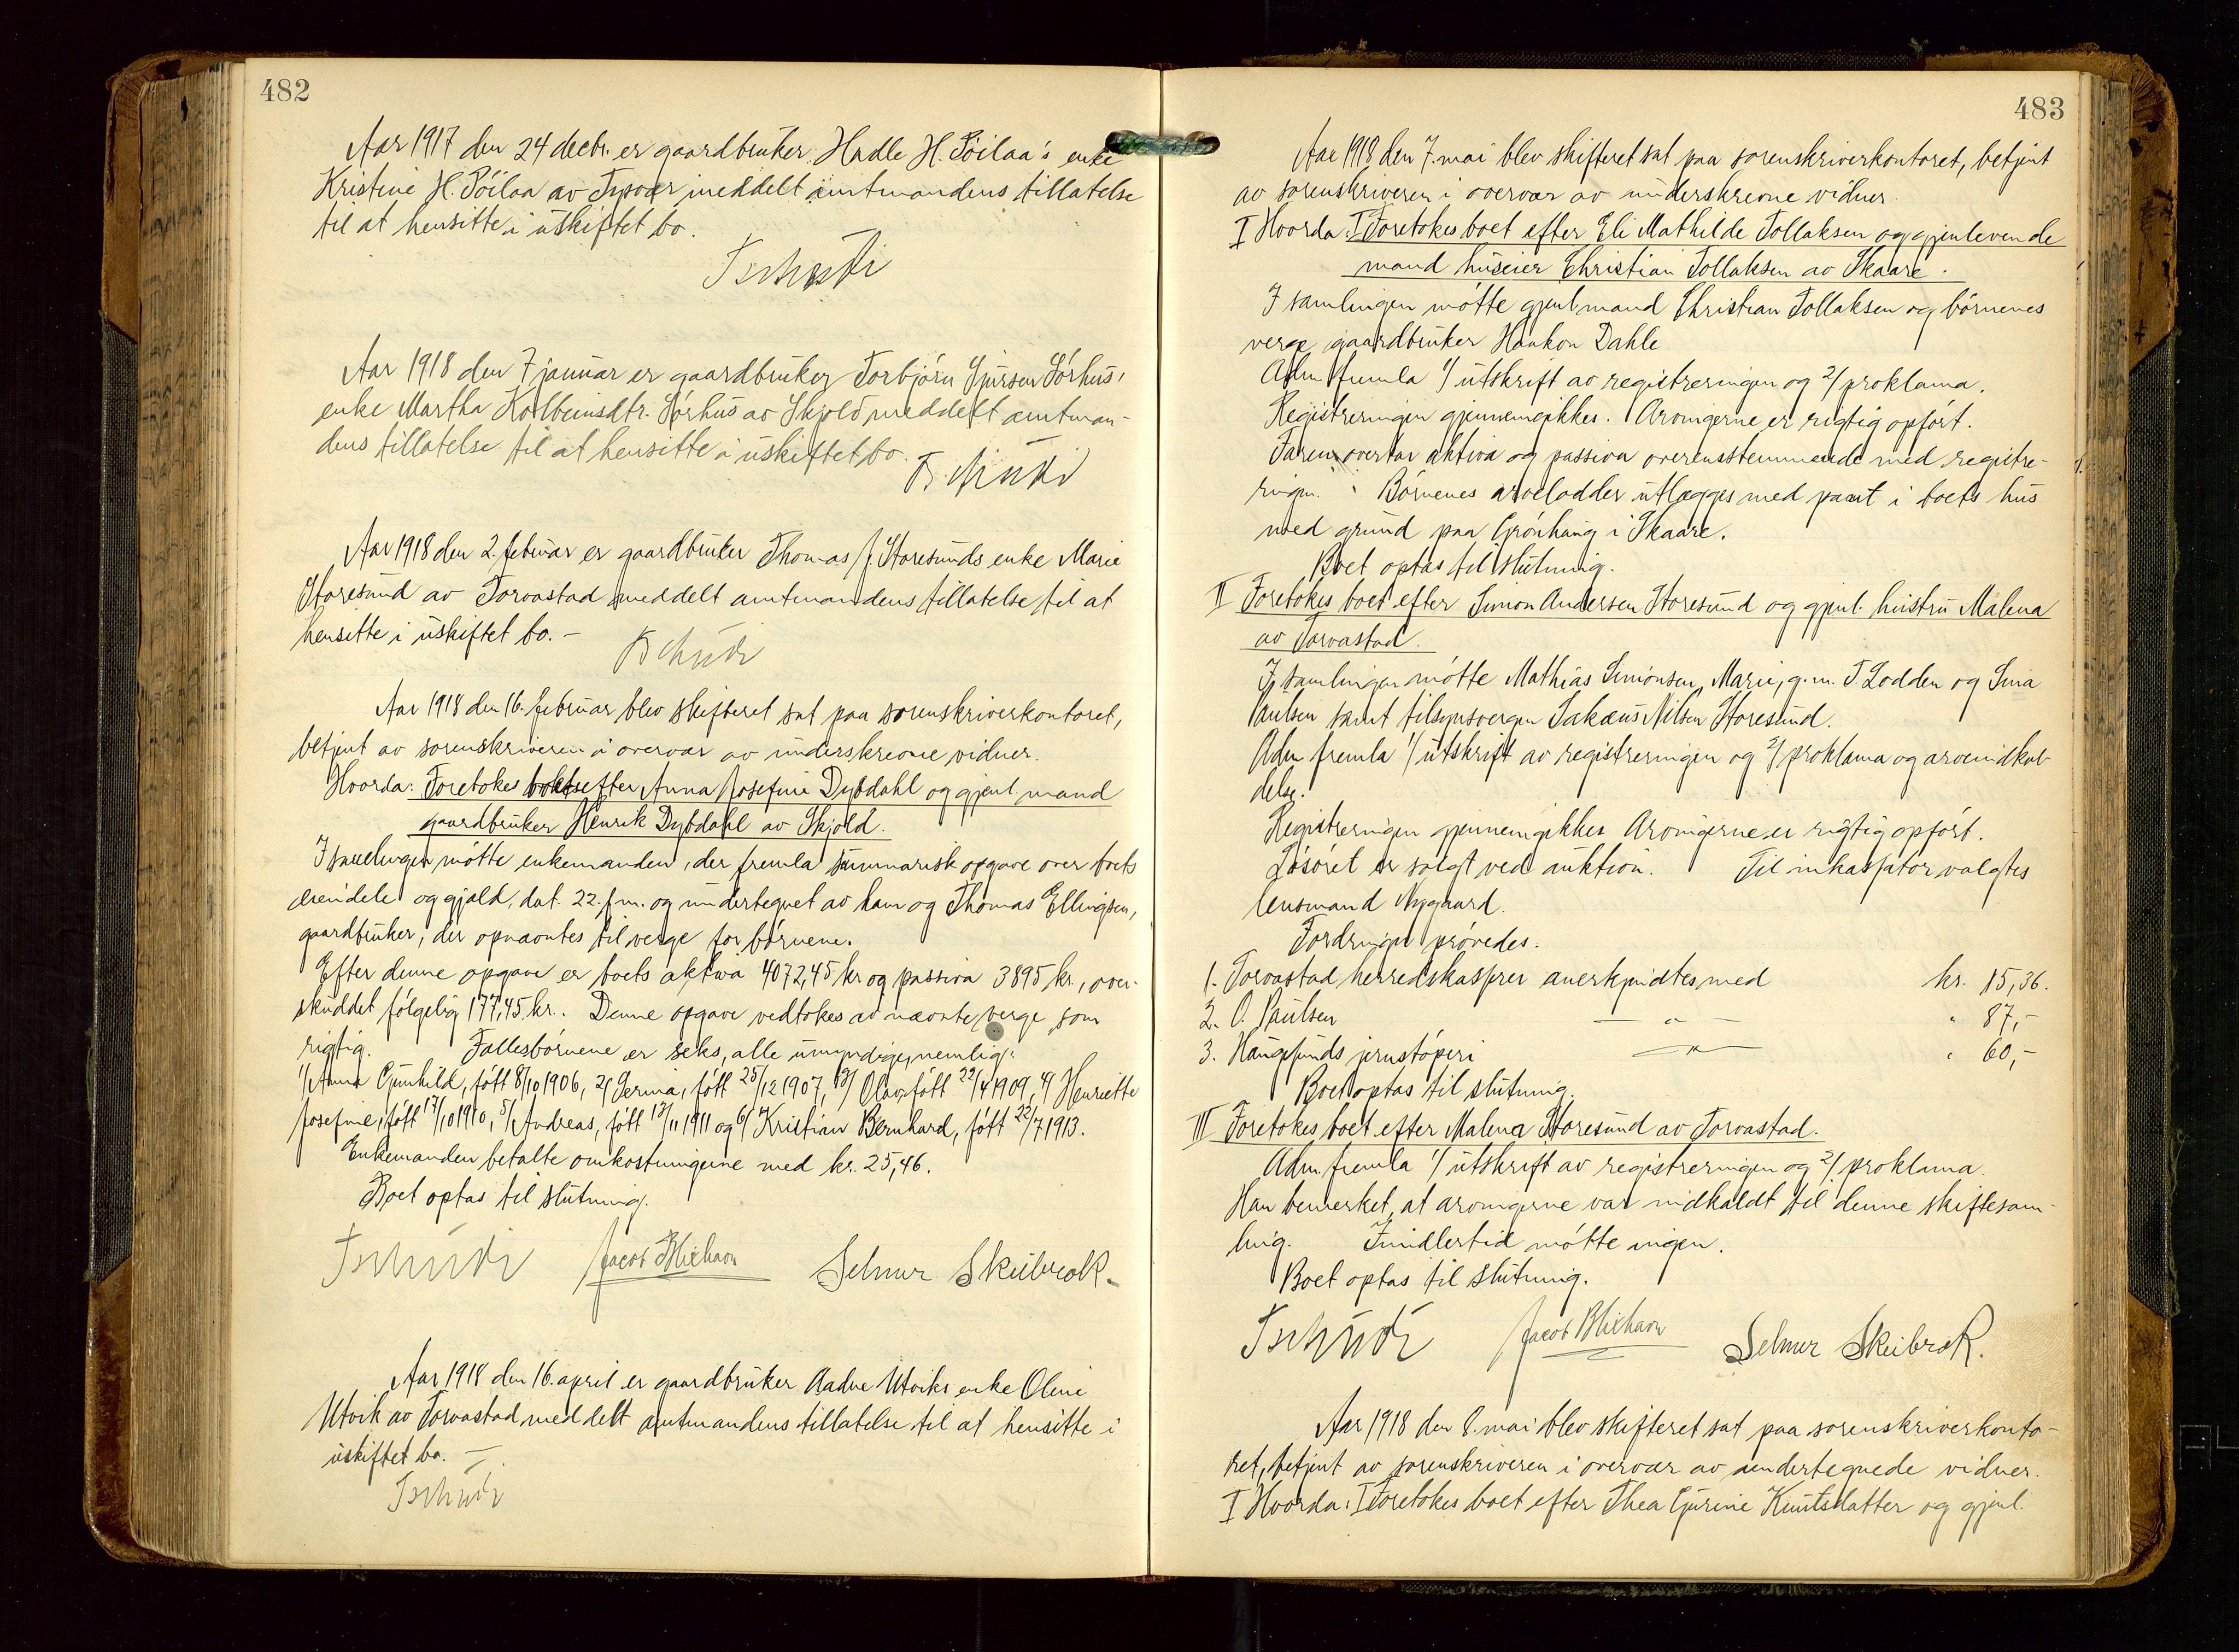 482
Aar 1917 den 24 decbr. er gaardbruker Hadle H. Pöilaa's enke
Kristine H. Pöilaa av Tysvær meddelt amtmandens tillatelse
til at hensitte i uskiftet bo.
Tschudi
Aar 1918 den 7 januar er gaardbruker Torbjörn Sjursen Sörhus,
enke Martha Kolbeinsdtr. Sörhus av Skjold meddelt amtman-
dens tillatelse til at hensitte i uskiftet bo.
Tschudi
Aar 1918 den 2. februar er gaardbruker Thomas J. Storesunds enke Marie
Storesund av Torvastad meddelt amtmandens tillatelse til at
hensitte i uskiftet bo. -
Tschudi
Aar 1918 den 16. februar blev skifteret sat paa sorenskriverkontoret,
betjent av sorenskriveren i overvær av underskrevne vidner.
Hvorda: Foretokes boet efter Anna Josefine Dybdahl og gjenl. mand
gaardbruker Henrik Dybdahl av Skjold.
I samlingen mötte enkemanden, der fremla summarisk opgave over boets
eiendele og gjæld, dat. 22. f.m. og undertegnet av ham og Thomas Ellingsen,
gaardbruker, der opnævntes til verge for börnene.
Efter denne opgave er boets aktiva 4072,45 kr og passiva 3895 kr., over-
skuddet fölgelig 177,45 kr.. Denne opgave vedtokes av nævnte verge som
rigtig. Fællesbörnene er seks, alle umyndige, nemlig:
1/ Anna Gunhild, fött 8/10 1906, 2/ Jerina, fött 25/12 1907, 3/ Olav, fött 22/4 1909, 4/ Henriette
Josefine, fött 17/10 1910, 5/ Andreas, fött 13/11 1911 og 6/ Kristian Bernhard, fött 22/7 1913.
Enkemanden betalte omkostningerne med kr. 25,46.
Boet optas til slutning.
Tschudi Jacob Blixhavn Selmer Skeibrok.
Aar 1918 den 16. april er gaardbruker Aadne Utviks enke Oline
Utvik av Torvastad meddelt amtmandens tillatelse til at hensitte i
uskiftet bo. -
Tschudi
483
Aar 1918 den 7. mai blev skifteret sat paa sorenskriverkontoret, betjent
av sorenskriveren i overvær av underskrevne vidner.
I Hvorda: I Foretokes boet efter Eli Mathilde Tollaksen og gjenlevende
mand huseier Christian Tollaksen av Skaare.
I samlingen mötte gjenl. mand Christian Tollaksen og börnenes
verge gaardbruker Haakon Dahle.
Adm. fremla 1/ utskrift av registreringen og 2/ proklama.
Registreringen gjennemgikkes. Arvingerne er rigtig opfört.
Faren overtar aktiva og passiva overensstemmende med registre-
ringen. Börnenes arvelodder utlægges med pant i boets hus
med grund paa Grönhaug i Skaare.
Boet optas til slutning.
II Foretokes boet efter Simon Andersen Storesund og gjenl. hustru Malena
av Torvastad.
I samlingen mötte Mathias Simonsen, Marie, g.m. T. Lodden og Sina
Paulsen samt tilsynsvergen Sakæus Nilsen Storesund.
Adm. fremla 1/ utskrift av registreringen og 2/ proklama og arveindkal-
delse.
Registreringen gjennemgikkes. Arvingerne er rigtig opfört.
Lösöret er solgt ved auktion. Til inkassator valgtes
lensmand Nygaard.
Fordringer prövedes.
1. Torvastad herredskasserer anerkjendtes med kr. 15,36.
2. O. Paulsen — " — " 87,-
3. Haugesunds jernstöperi — " — " 60,-
Boet optas til slutning.
III Foretokes boet efter Malena Storesund av Torvastad.
Adm. fremla 1/ utskrift av registreringen og 2/ proklama.
Han bemerket, at arvingerne var indkaldt til denne skiftesam-
ling. Imidlertid mötte ingen.
Boet optas til slutning.
Tschudi Jacob Blixhavn Selmer Skeibrok.
Aar 1918 den 8. mai blev skifteret sat paa sorenskriverkonto-
ret, betjent av sorenskriveren i overvær av undertegnede vidner.
I Hvorda: I Foretokes boet efter Thea Gurine Knutsdatter og gjenl.